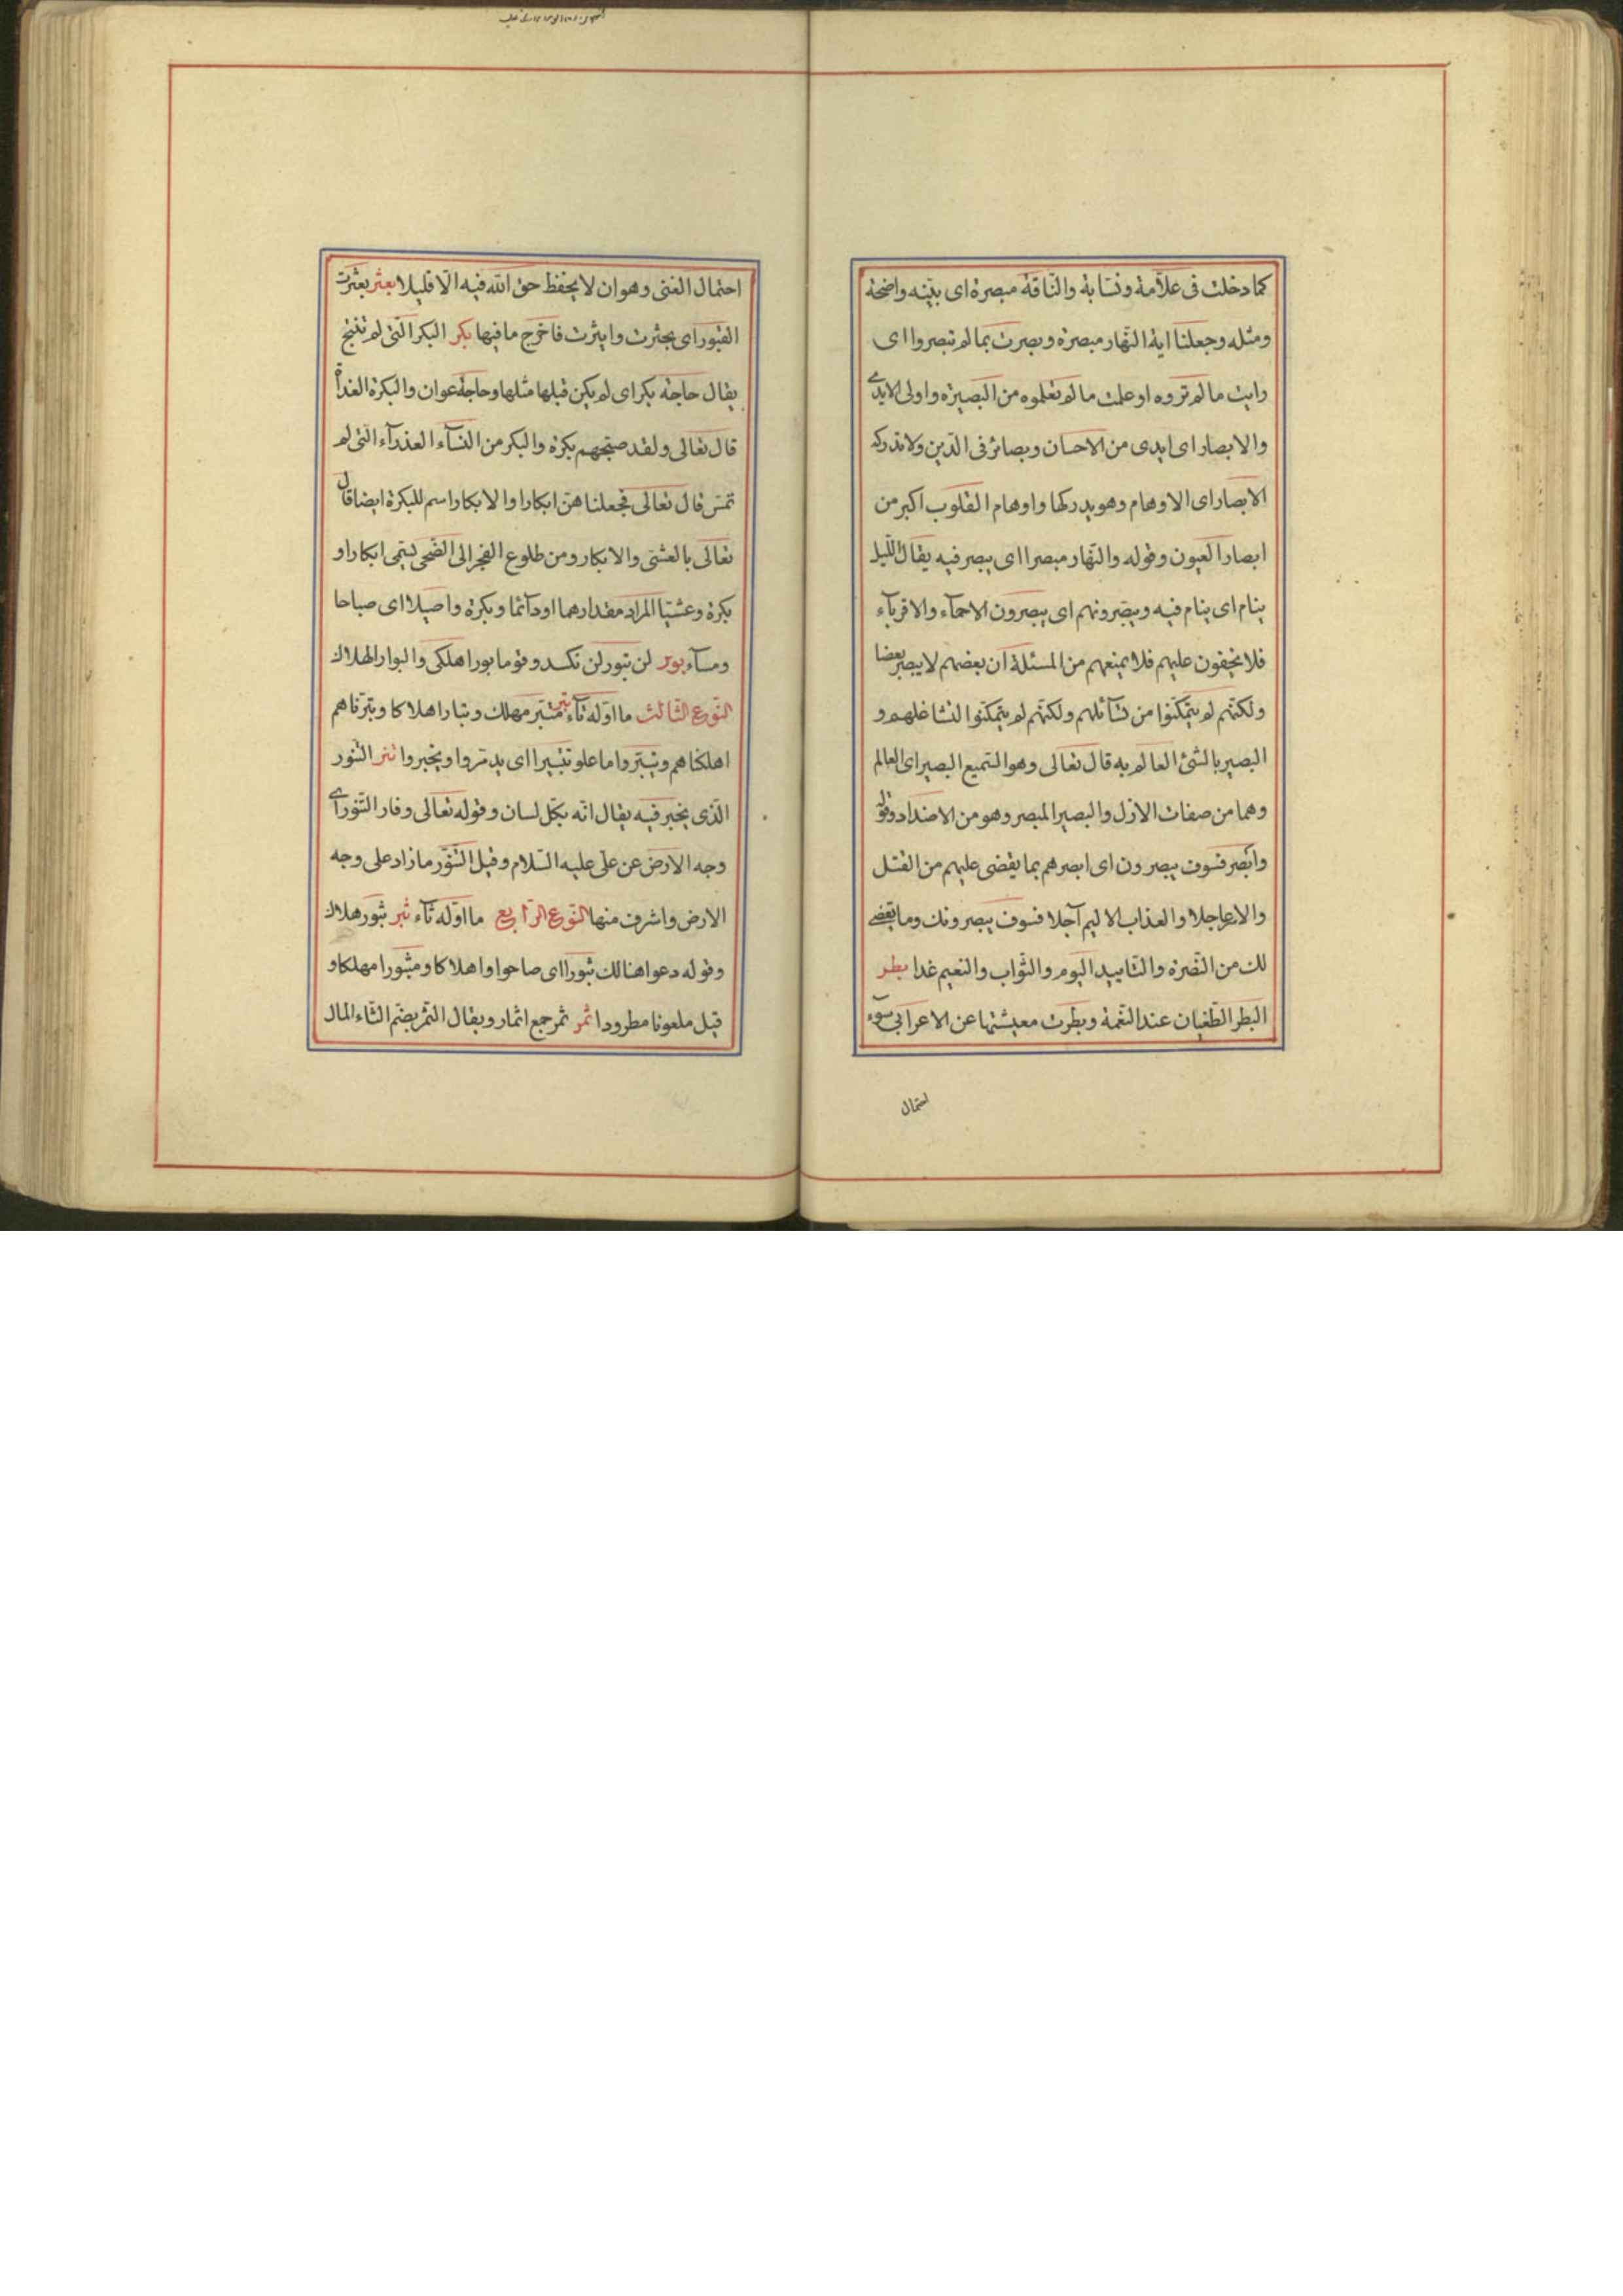 كما دخلت فى علّامة ونسّابة والنّاقة مبصرة اى بيّنه واضحة
ومثله وجعلنا اية النّهار مبصرة وبصرت بما لم تبصروا اى
رايت ما لم تروه او علمت ما لم تعلموه من البصيرة واولى الايدى
والابصار اى ايدى من الاحسان وبصائر فى الدّين ولا تدركه
الابصار اى الاوهام وهو يدركها واوهام القلوب اكبر من
ابصار العيون وقوله والنّهار مبصرا اى يبصر فيه يقال الليل
ينام اى ينام فيه ويبصّرونهم اى يبصرون الاحمآء والاقربآء
فلا يخفون عليهم فلا يمنعهم من المسئلة ان بعضهم لا يبصر بعضا
ولكنّهم لم يتمكّنوا من تسآئلهم ولكنّهم لم يتمكنوا لتشاغلهم و
البصير بالشئ العالم به قال تعالى وهو السّميع البصير اى العالم
وهما من صفات الازل والبصير المبصر وهو من الاضداد وقوله
وابصر فسوف يبصرون اى ابصرهم بما يقضى عليهم من القتل
والاسر عاجلا والعذاب الاليم آجلا فسوف يبصرونك وما يقضى
لك من النّصرة والتاييد اليوم والثّواب والنعيم غدا بطر
البطر الطّغيان عند النّعمة وبطرت معيشتها عن الاعرابى سوء
احتمال
احتمال الغنى وهو ان لا يحفظ حق الله فيه الّا قليلا بعثر بعثرت
القبور اى بحثرت واثيرت فاخرج ما فيها بكر البكر الّتى لم تنتج
يقال حاجة بكر اى لم يكن قبلها مثلها وحاجة عوان والبكرة الغداة
قال تعالى ولقد صبّحهم بكرة والبكر من النسآء العذرآء الّتى لم
تمسّ قال تعالى فجعلناهنّ ابكارا والابكار اسم للبكرة ايضا قال
تعالى بالعشىّ والابكار ومن طلوع الفجر الى الضّحى يسمّى ابكارا و
بكرة وعشيّا المراد مقدارهما او دآئما وبكرة واصيلا اى صباحا
ومسآء بور لن تبور لن تكسد وقوما بورا هلكى والبوار الهلاك
النّوع الثّالث ما اوّله تآء تبر متبّر مهلك وتبارا هلاكا وتبّرناهم
اهلكناهم وليتبّروا ما علو تتبيرا اى يدمّروا ويخبروا تنر التنور
الّذى يخبر فيه يقال انّه بكلّ لسان وقوله تعالى وفار التّنور اى
وجه الارض عن علىّ عليه السّلام وقيل التّنّور ما زاد على وجه
الارض واشرف منها النّوع الرّابع ما اوّله ثآء ثبر ثبور هلاك
وقوله دعوا هنالك ثبورا اى صاحوا واهلاكا ومثبورا مهلكا و
قيل ملعونا مطرودا ثمر ثمر جمع اثمار ويقال الثّمر بضمّ الثّاء المال